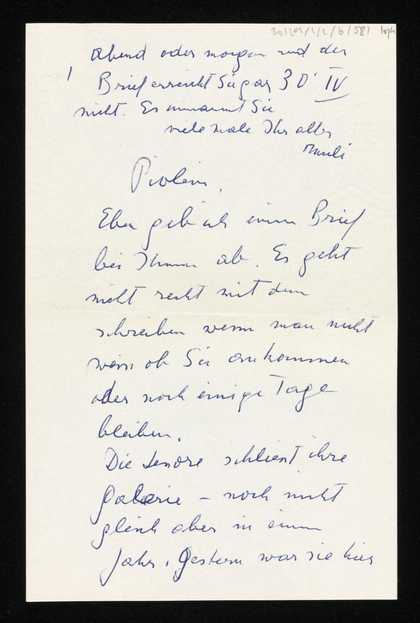 abend oder morgen und der
Brief erreicht Sie gar 30 IV
nicht. Es umarmt Sie
viele male Ihr alter
Muli
Piolein,
Eben geb ich einen Brief
bei Ihnen ab. Es geht
nicht recht mit dem
schreiben wenn man nicht
weiss ob Sie ankommen
oder noch einige Tage
bleiben.
Die Lenore schliesst ihre
Galerie – noch nicht
gleich aber in einem
Jahr. Gestern war sie hier